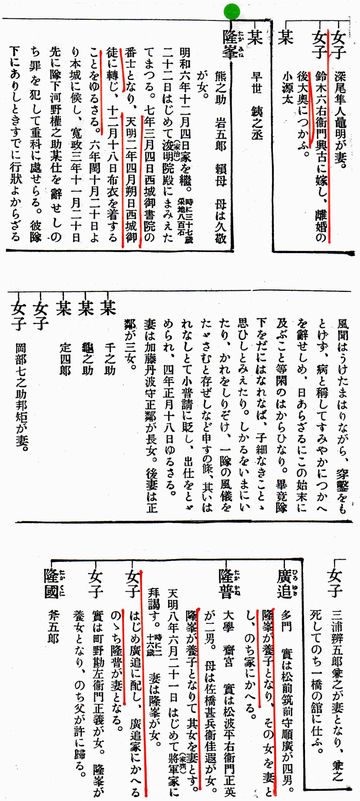 女子
深尾隼人龜明が妻。
女子
鈴木六右衞門興古に嫁し、離婚の
後大奧につかふ。
某
小源太
某
早世 銕之丞
隆峯
熊之助 岩五郎 頼母 母は久敬
が女。
明和六年十二月四日家を繼。時に三十七歳 采地八百石
二十二日はじめて浚明院殿(家治)にまみえた
てまつる。七年三月四日西城御書院の
番士となり、天明二年四月朔日西城御
徒に轉じ、十二月十八日布衣を着する
ことをゆるさる。六年閏十月二十日よ
り本城に候し、寛政三年十一月二十日
先に隊下河野權之助某仕を辭せしの
ち罪を犯して重科に處せらる。彼隊
下にありしときすでに行狀よからざる
風聞はうけたまはりながら、穿鑿をも
とげず、病と稱してすみやかにつかへ
を辭せしめ、日あらざるにこの始末に
及ぶこと等閑のはからひなり。畢竟隊
下をだにはなれなば、子細なきことゝ
思ひしとみえたり。しかるをいまにい
たり、かれをしりぞけ、一隊の風儀を
たゞさむと存ぜしなど申すの條、其いは
れなしとて小普請に貶し、出仕をとゞ
められ、四年正月十八日ゆるさる。
妻は加藤丹波守正鄰が長女。後妻は正
鄰が三女。
某
千之助
某
龜之助
某
定四郎
女子
女子
岡部七之助邦矩が妻。
女子
三浦辨五郎兼之が妻となり、兼之
死してのち一橋の舘に仕ふ。
廣追
多門 實は松前筑前守順廣が四男。
隆峯が養子となり、その女を妻と
し、のち家にかへる。
隆普
大學 齋宮 實は松波平右衞門正英
が二男。母は佐橋甚兵衞佳遐が女。
隆峯が養子となりて其女を妻とす。
天明八年六月二十一日はじめて將軍家(家齊)に
拜謁す。時に二十六歳 妻は隆峯が女。
女子
はじめ廣追に配し、廣追家にかへる
のゝち隆普が妻となる。
女子
實は町野勘左衞門正義が女。隆峯が
養女となり、のち父が許に歸る。
隆國
斧五郎